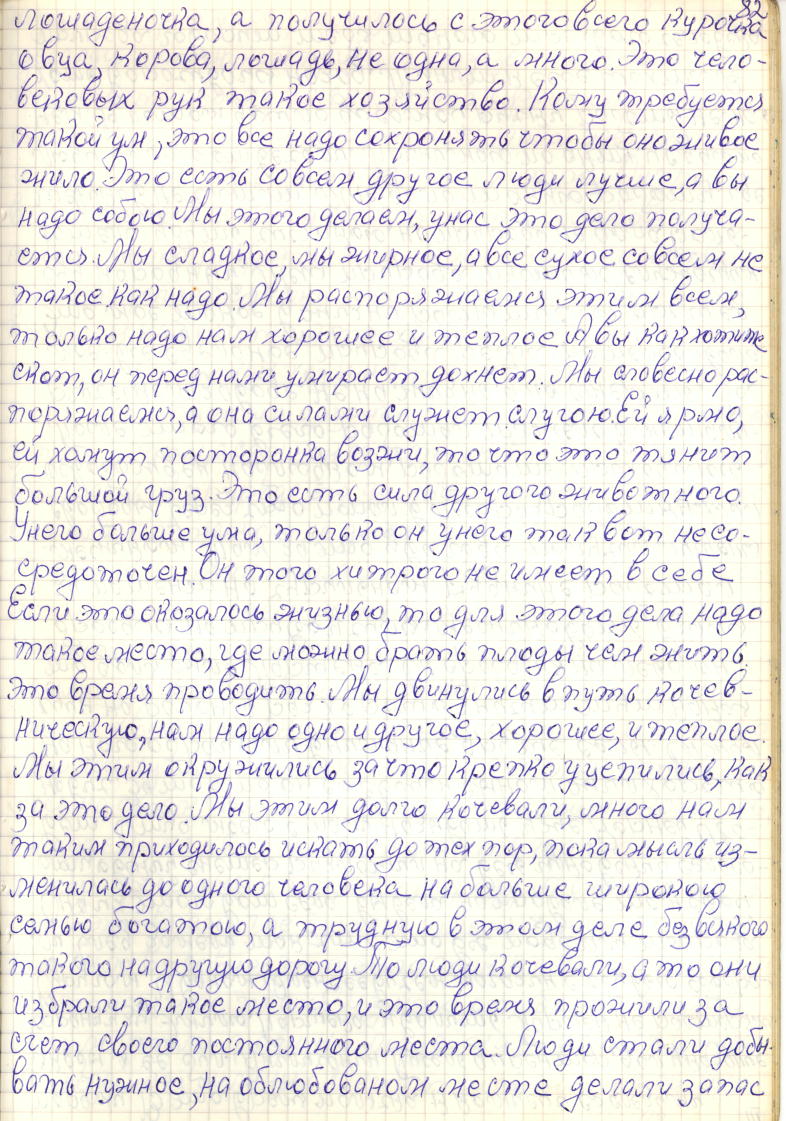 82
лошаденочка, а получилось с этого всего курочка
овца, корова, лошадь, не одна, а много. Это чело-
вековых рук такое хозяйство. Кому требуется
такой ум, это все надо сохронять чтобы оно живое
жило. Это есть совсем другое люди лучше, а вы
надо собою. Мы этого делаем, унас это дело получа-
ется. Мы сладкое, мы жирное, а все сухое совсем не
такое как надо. Мы распоряжаемся этим всем,
только надо нам хорошее и теплое А вы как хотите
скот, он перед нами умирает дохнет. Мы словесно рас-
поряжаемся, а она силами служет слугою. Ей ярмо,
ей хомут посторонка возжи, то что это тянит
большой груз. Это есть сила другого животного.
Унего больше ума, только он унего так вот несо-
средоточен. Он того хитрого не имеет в себе
Если это оказалось жизнью, то для этого дела надо
такое место, где можно брать плоды чем жить.
Это время проводить. Мы двинулись в путь кочев-
ническую, нам надо одно и другое, хорошее, и теплое.
Мы этим окружились за что крепко уцепились, как
за это дело. Мы этим долго кочевали, много нам
таким приходилось искать до тех пор, пока мысль из-
менилась до одного человека на больше широкою
семью богатою, а трудную в этом деле без всякого
такого на другую дорогу. То люди кочевали, а то они
избрали такое место, и это время прожили за
счет своего постоянного места. Люди стали добы-
вать нужное, на облюбованом месте делали запас